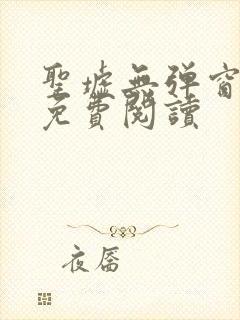 聖墟無彈窗
免費閱讀
夜厴